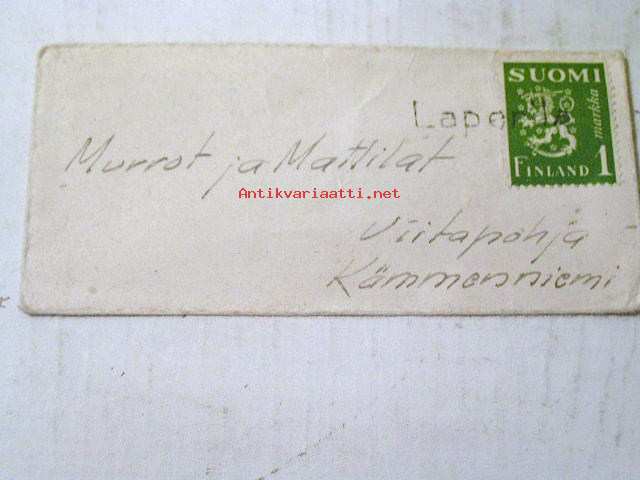 SUOMI
markka
FINLAND 1
Murrot ja Mattilat
Antikvariaatti.net
Viitapohja
Kämmenniemi